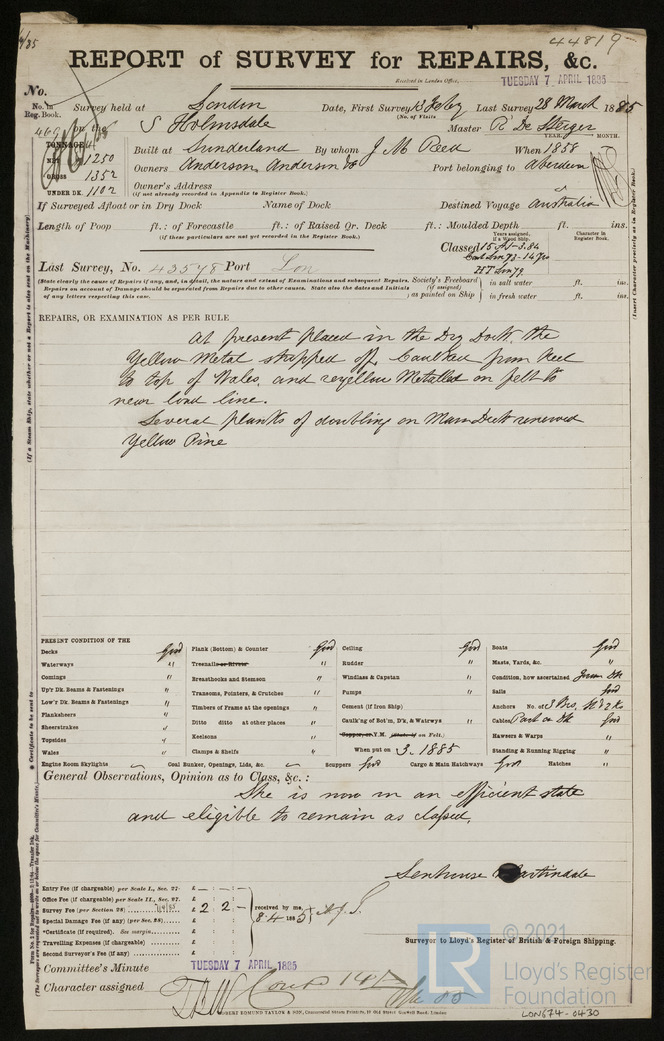 44819
REPORT of SURVEY for REPAIRS, &c.
Received in London Office, TUESDAY 7 APRIL 1885
No.
No. in Reg. Book. Survey held at London Date, First Survey 13 Feby Last Survey 28 March 1885
(No. of Visits
469 on the S Holmsdale Master R De Steiger
TONNAGE YEAR. MONTH.
NET 1250 Built at Sunderland By whom J M Reed When 1858
GROSS 1352 Owners Anderson, Anderson & Co Port belonging to Aberdeen
UNDER DK. 1102 Owner's Address
(If not already recorded in Appendix to Register Book.)
If Surveyed Afloat or in Dry Dock Name of Dock Destined Voyage Australia
Length of Poop ft.: of Forecastle ft.: of Raised Qr. Deck ft.: Moulded Depth ft. ins.
(If these particulars are not yet recorded in the Register Book.)
Years assigned, if a Wood Ship. Character in Register Book.
Classed 15 A1-3.84
Cont Lon 73-14 yrs
HT Lon 79
Last Survey, No. 43578 Port Lon
(State clearly the cause of Repairs if any, and, in detail, the nature and extent of Examinations and subsequent Repairs.
Repairs on account of Damage should be separated from Repairs due to other causes. State also the dates and Initials
of any letters respecting this case.
Society's Freeboard (if assigned) as painted on Ship
in salt water ft. ins.
in fresh water ft. ins.
REPAIRS, OR EXAMINATION AS PER RULE
At present placed in the Dry Dock, the
Yellow Metal stripped off, Caulked from Keel
to top of Wales, and reyellow Metalled on felt to
near load line.
Several planks of doubling on Main Deck renewed
Yellow Pine
PRESENT CONDITION OF THE
Decks Good
Waterways "
Comings "
Up'r Dk. Beams & Fastenings "
Low'r Dk. Beams & Fastenings "
Planksheers "
Sheerstrakes "
Topsides "
Wales "
Engine Room Skylights
Plank (Bottom) & Counter Good
Treenails or Rivets "
Breasthooks and Stemson "
Transoms, Pointers, & Crutches "
Timbers of Frame at the openings "
Ditto ditto at other places "
Keelsons "
Clamps & Shelfs "
Coal Bunker, Openings, Lids, &c.
Ceiling Good
Rudder "
Windlass & Capstan "
Pumps "
Cement (if Iron Ship)
Caulk'ng of Bot'm, D'k, & Watrwys "
Copper, or Y.M. (state if on Felt.)
When put on 3.1885
Scuppers Good Cargo & Main Hatchways Good Hatches "
Boats Good
Masts, Yards, &c. "
Condition, how ascertained from Dk
Sails Good
Anchors No. of 3 Brs, 1 S 2 K
Cables Part on Dk Good
Hawsers & Warps "
Standing & Running Rigging "
General Observations, Opinion as to Class, &c.:
She is now in an efficient state
and eligible to remain as classed,
Senhouse Martindale
Surveyor to Lloyd's Register of British & Foreign Shipping.
Entry Fee (if chargeable) per Scale I., Sec. 27.
Office Fee (if chargeable) per Scale II., Sec. 27.
Survey Fee (per Section 28) £ 2 2 -
Special Damage Fee (if any) (per Sec. 28)
*Certificate (if required). See margin
Travelling Expenses (if chargeable)
Second Surveyor's Fee (if any)
received by me,
8.4 1885
Committee's Minute TUESDAY 7 APRIL 1885
Character assigned
ROBERT EDMUND TAYLOR & SON,
© 2021
LR Lloyd's Register
Foundation
LON674-0430